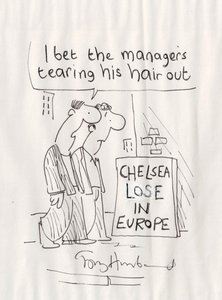 I bet the managers
tearing his hair out
CHELSEA
LOSE
IN
EUROPE
Tony Husband